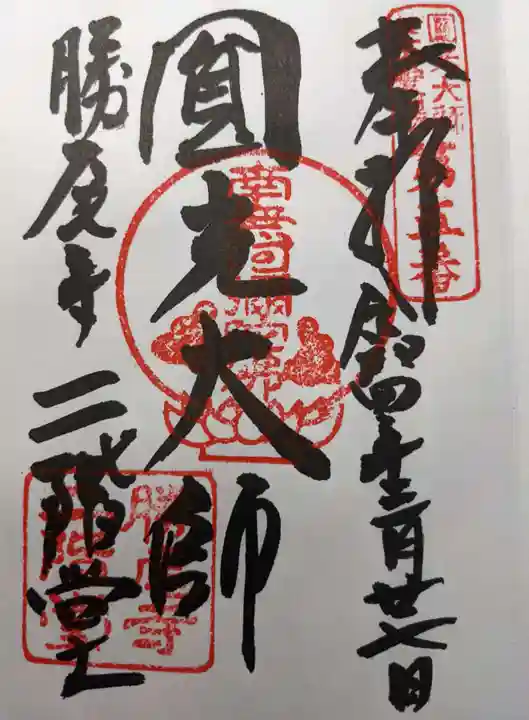 奉拝 令和四年十二月廿七日
圓光大師
勝尾寺 二階堂
圓光大師
第五番
南無阿弥陀佛
勝尾寺
二階堂